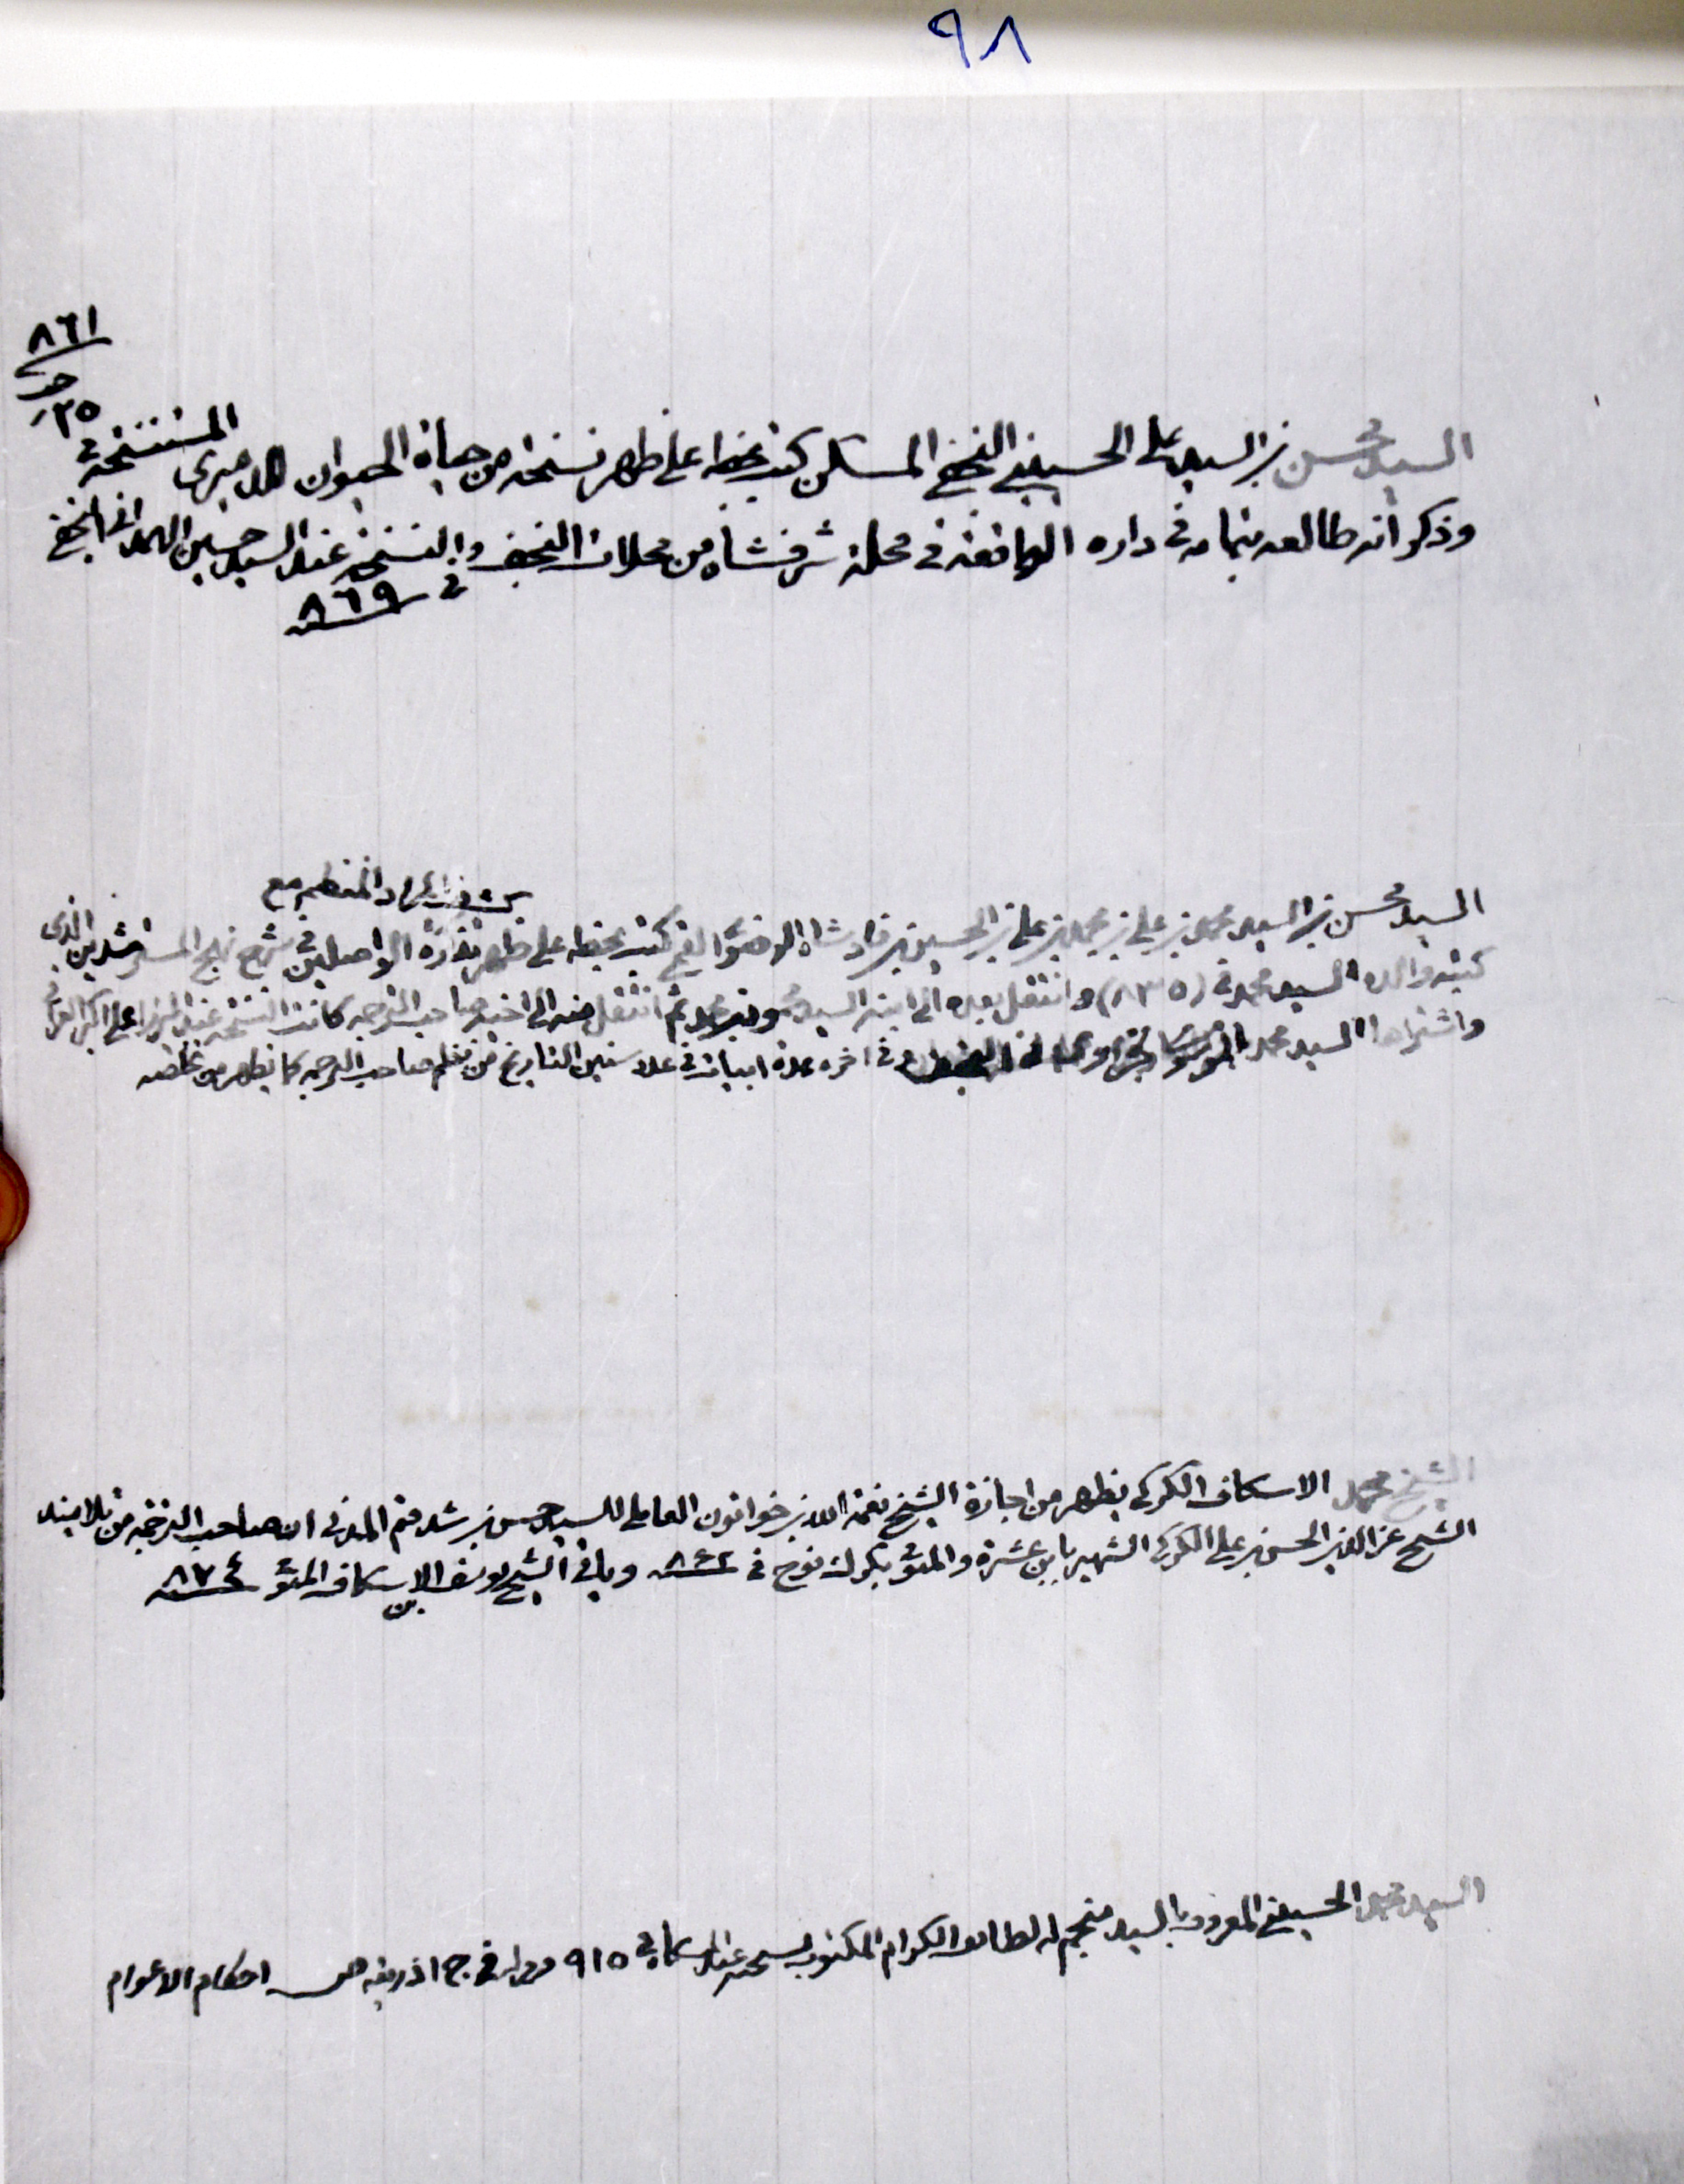 ٩٨
٨٦١
٢٥
السيد محسن بن السيد على الحسينى النجفى المسكن كتب بخطه على ظهر نسخة من حياة الحيوان للدميرى المستنسخة فى
وذكر انه طالعه بتمامه فى داره الواقعة فى محلة شرفشاه من محلات النجف والنسخة عند السيد حسين الهمدانى النجفى
فى ٨٦٩
السيد محسن بن السيد محمد بن على بن محمد بن على بن الحسين بن پادشاه الرضوى القمى كتب بخطه على ظهر تذكرة الواصلين فى شرح نهج المسترشدين الذى
كتبه والده السيد محمد فى (٨٣٥) وانتقل بعده الى ابنه السيد ثم انتقل منه الى اخيه صاحب الترجمه كانت النسخه عند الميرزا على اكبر العراقى
واشتراها السيد محمد الموسوى فى اخره عدة ابيات فى عدد سنين التاريخ من نظم صاحب الترجمه كما يظهر من تخلصه
الشيخ محمد الاسكاف الكركى يظهر من اجازة الشيخ نعمة الله بن خواتون العاملى للسيد حسن بن شدقم المدنى ان صاحب الترجمة من تلاميذ
الشيخ عز الدين الحسن بن على الكركى الشهير بابن عشرة والمتوفى بكرك نوح فى ٨٦٢ وياتى الشيخ يوسف بن الاسكاف المتوفى ٨٧٤
السيد محمد الحسينى المعروف بالسيد منجم له لطائف الكرام المكتوب نسخته فى ٩١٥ احكام الاعوام